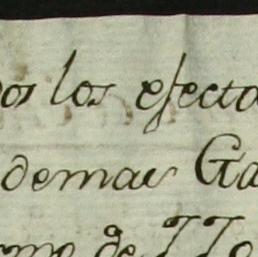 os los efecto
demas Ga
de 770